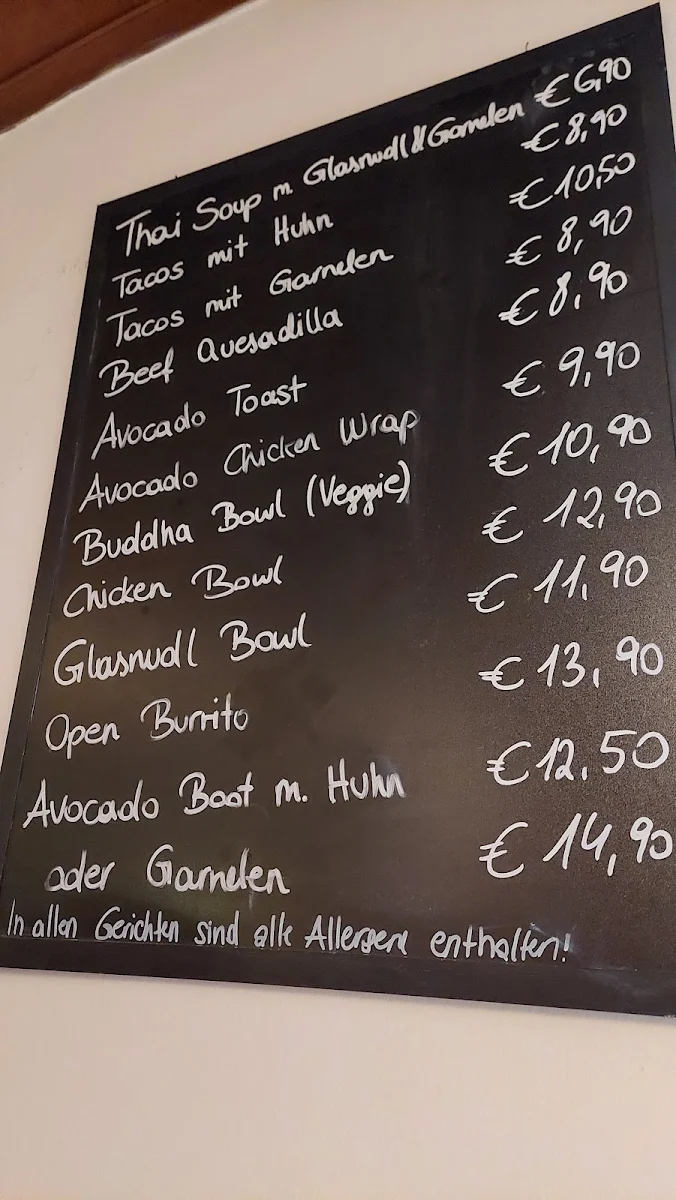 Thai Soup m Glasnudl & Garnelen € 6,90
Tacos mit Huhn € 8,90
Tacos mit Garnelen € 10,50
Beef Quesadilla € 8,90
Avocado Toast € 8,90
Avocado Chicken Wrap € 9,90
Buddha Bowl (Veggie) € 10,90
Chicken Bowl € 12,90
Glasnudl Bowl € 11,90
Open Burrito € 13,90
Avocado Boot m. Huhn € 12.50
oder Garnelen € 14,90
In allen Gerichten sind alle Allergene enthalten!